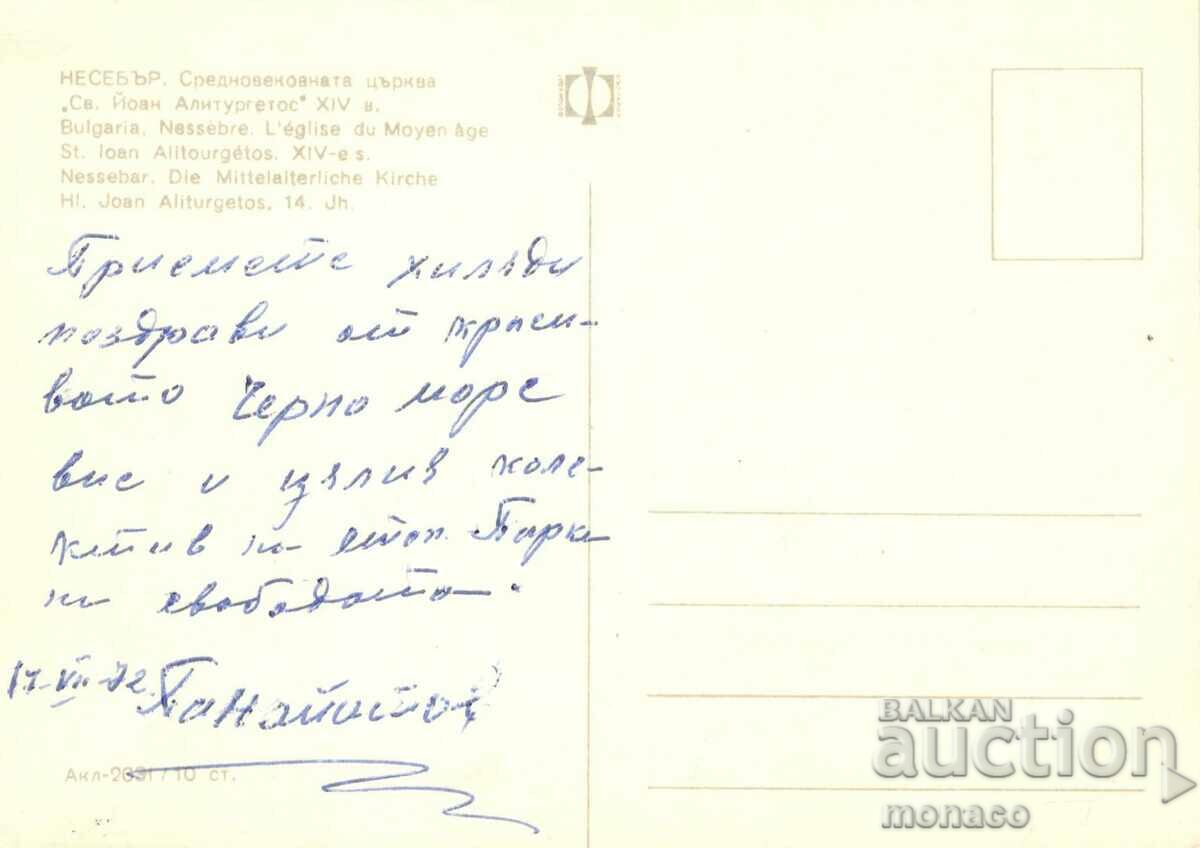 НЕСЕБЪР. Средновековната църква
„Св. Йоан Алитургетос" XIV в.
Bulgaria, Nessèbre. L'église du Moyen âge
St. Ioan Alitourgétos. XIV-e s.
Nessebar. Die Mittelalterliche Kirche
Hl. Joan Aliturgetos, 14. Jh.
Приемете хиляди
поздрави от краси-
вото Черно море
вие и целия коле-
ктив на Парк
на свободата.
17-VII-72 Панайотов
Акл-2031/10 ст.
BALKAN
auction
monaco